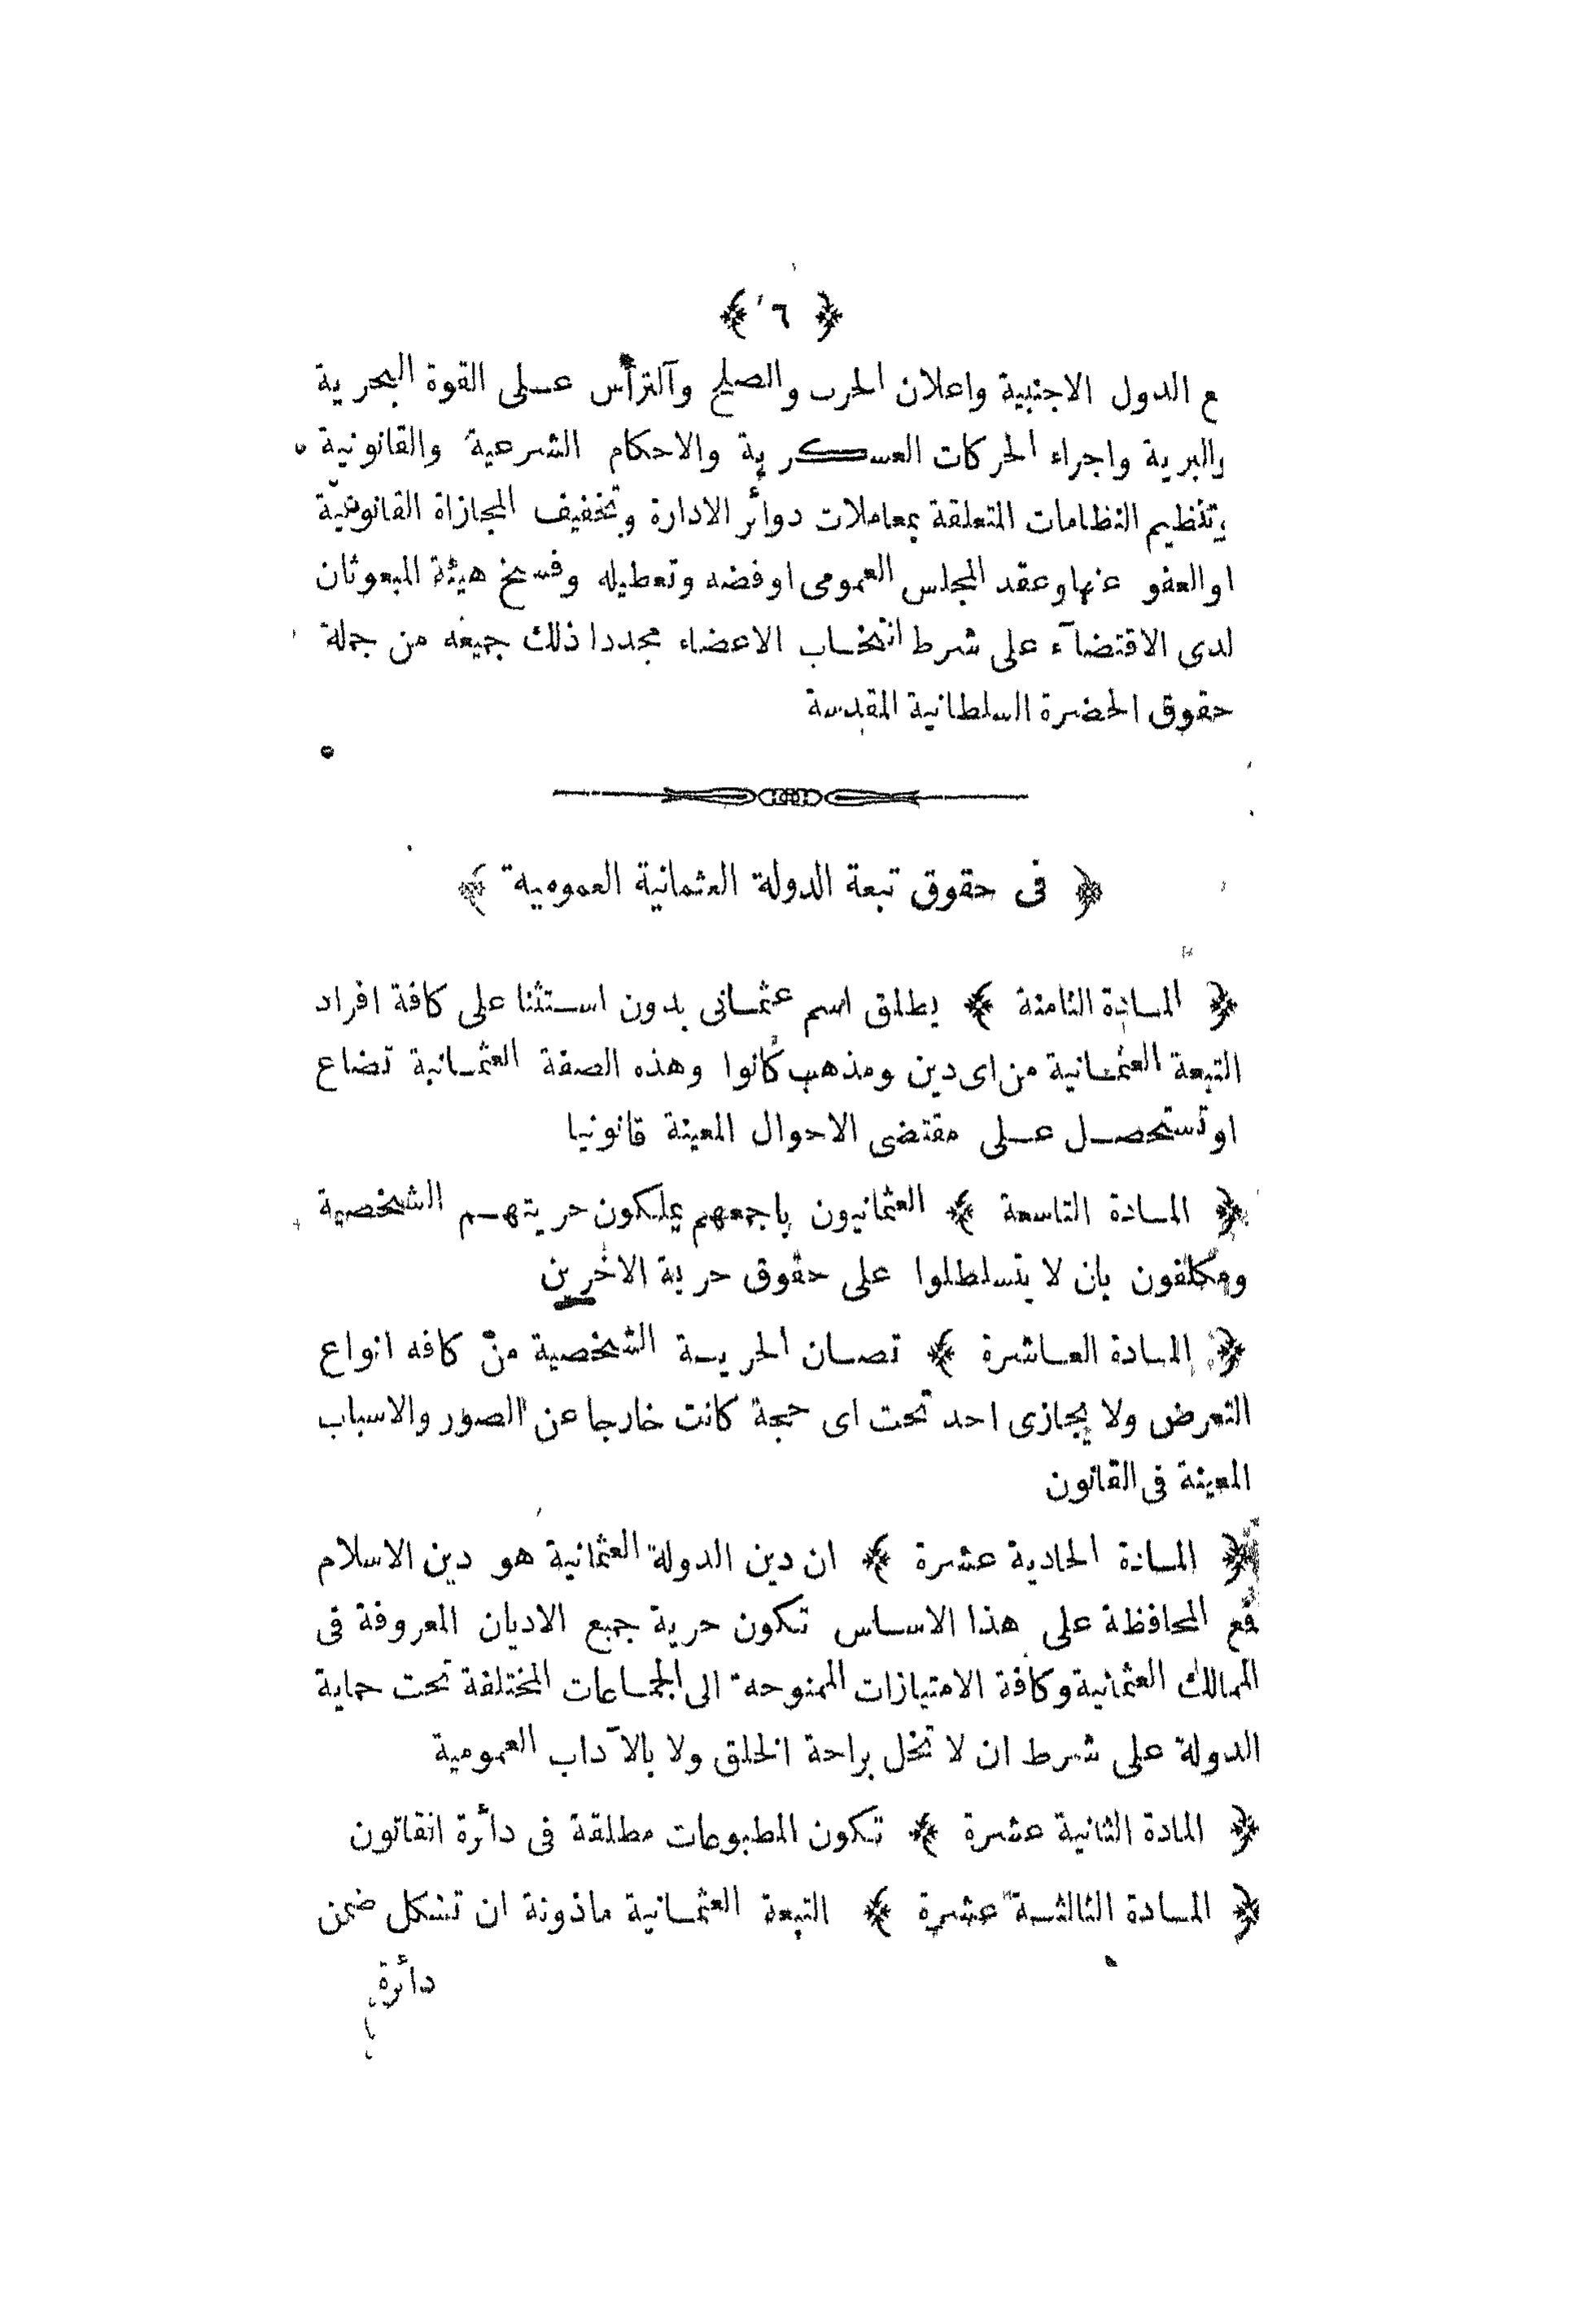 ﴿ ٦ ﴾
ع الدول الاجنبية واعلان الحرب والصلح وآلترأس عـلى القوة البحرية
والبرية واجراء الحركات العسكرية والاحكام الشرعية والقانونية
وتنظيم النظامات المتعلقة بمعاملات دوائر الادارة وتخفيف المجازاة القانونية
او العفو عنها وعقد المجلس العمومى اوفضه وتعطيله وفسخ هيئة المبعوثان
لدى الاقتضآء على شرط انتخاب الاعضاء مجددا ذلك جميعه من جملة
حقوق الحضرة السلطانية المقدسة
﴿ فى حقوق تبعة الدولة العثمانية العمومية ﴾
﴿ المـادة الثامنة ﴾ يطلق اسم عثمـانى بدون اسـتثنا على كافة افراد
التبعة العثمـانية من اى دين ومذهب كانوا وهذه الصفة العثمـانية تضاع
او تستحصـل عـلى مقتضى الاحوال المعينة قانونيا
﴿ المـادة التاسعة ﴾ العثمانيون باجمعهم يملكون حريتهـم الشخصية
ومكلفون بان لا يتسلطلوا على حقوق حرية الاخرين
﴿ المـادة العـاشرة ﴾ تصـان الحريـة الشخصية من كافه انواع
التعرض ولا يجازى احد تحت اى حجة كانت خارجا عن الصور والاسباب
المعينة فى القانون
﴿ المـادة الحادية عشرة ﴾ ان دين الدولة العثمانية هو دين الاسلام
فمع المحافظة على هذا الاسـاس تكون حرية جميع الاديان المعروفة فى
الممالك العثمانية وكافة الامتيازات الممنوحة الى الجمـاعات المختلفة تحت حماية
الدولة على شرط ان لا تخل براحة الخلق ولا بالآداب العمومية
﴿ المادة الثانية عشرة ﴾ تكون المطبوعات مطلقة فى دائرة القانون
﴿ المـادة الثالثـة عشرة ﴾ التبعة العثمـانية ماذونة ان تشكل ضمن
دائرة